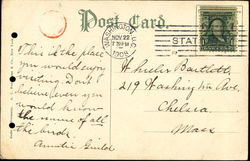 Post Card.
WASHINGTON, D.C.
NOV 22
7 PM
1908
STAT
This is the place
you would enjoy
visiting. Don't
believe even you
would know
the names of all
the birds.
Auntie Guild
Wheeler Bartlett
219 Washington Ave
Chelsea
Mass